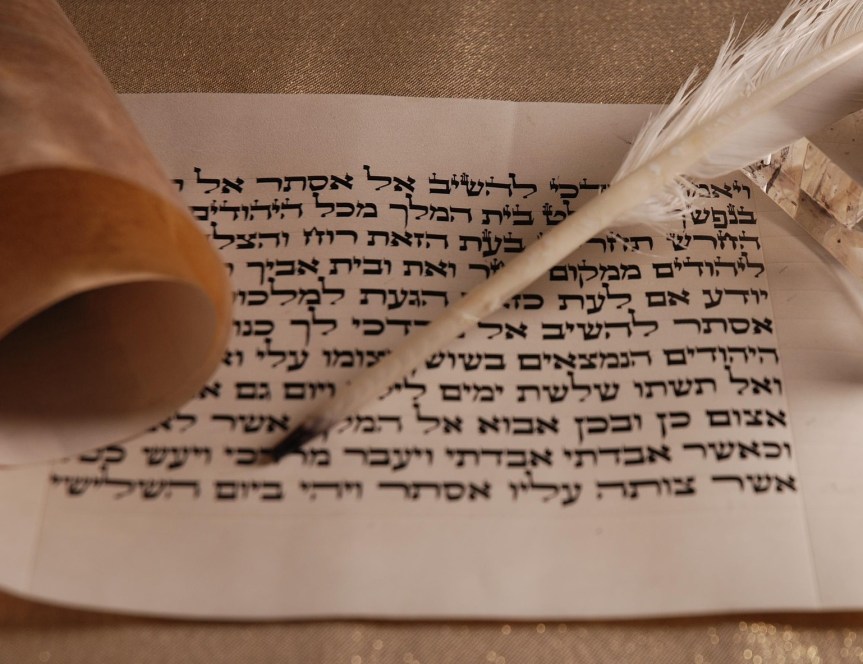 להשיב אל אסתר אל
בית המלך מכל היהודים
החרש בעת הזאת רוח
ליהודים ממקום ואת ובית אביך
יודע אם לעת הגעת
אסתר להשיב אל לך
היהודים הנמצאים בשושן עלי
ואל תשתו שלשת ימים ויום גם
אצום כן ובכן אבוא אל המלך אשר
וכאשר אבדתי אבדתי ויעבר ויעש
אשר צותה עליו אסתר ויהי ביום השלישי